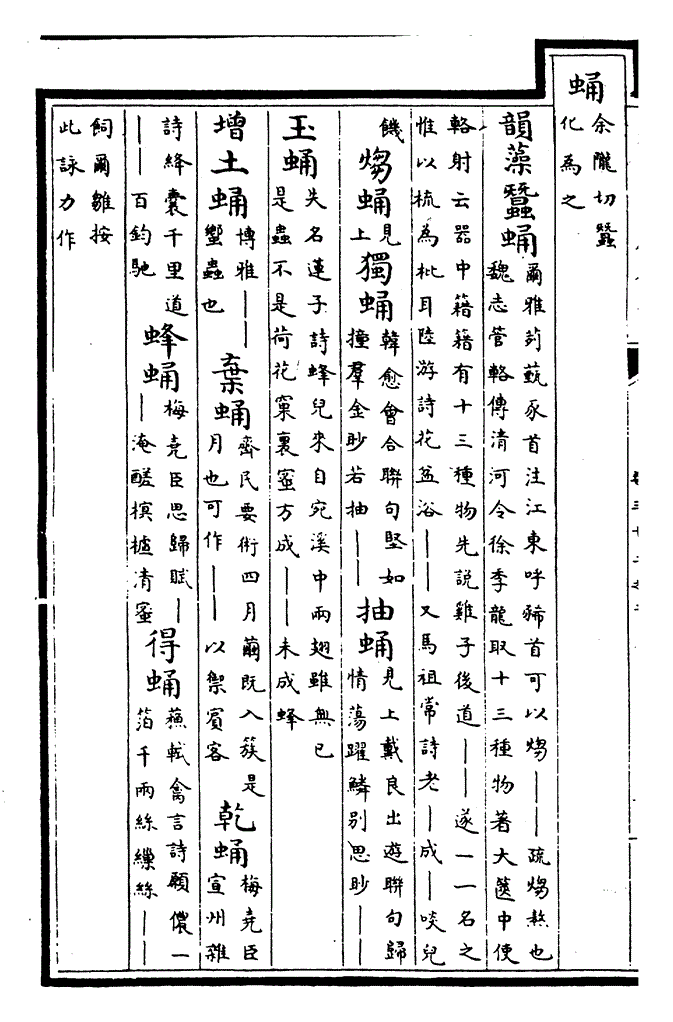 蛹 余隴切蠶
化為之
韻藻 蠶蛹 爾雅茢薽豕首注江東呼豨首可以煼——疏煼熬也
魏志管輅傳清河令徐季龍取十三種物著大篋中使
輅射云器中藉藉有十三種物先說雞子後道——遂一一名之
惟以梳為枇耳陸游詩花盆浴——又馬祖常詩老—成—啖兒
饑 煼蛹 見
上 獨蛹 韓愈會合聯句堅如
撞羣金眇若抽—— 抽蛹 見上戴良出遊聯句歸
情蕩躍鱗別思眇——
玉蛹 失名蓮子詩蜂兒來自宛溪中兩翅雖無已
是蟲不是荷花窠裏蜜方成——未成蜂
增 土蛹 博雅——
蠁蟲也 棄蛹 齊民要術四月繭既入簇是
月也可作——以禦賓客 乾蛹 梅堯臣
宣州雜
詩絳囊千里道
——百鈞馳 蜂蛹 梅堯臣思歸賦—
—淹醯榠樝清蜜 得蛹 蘇軾禽言詩願儂一
箔千兩絲繅絲——
飼爾雛按
此詠力作